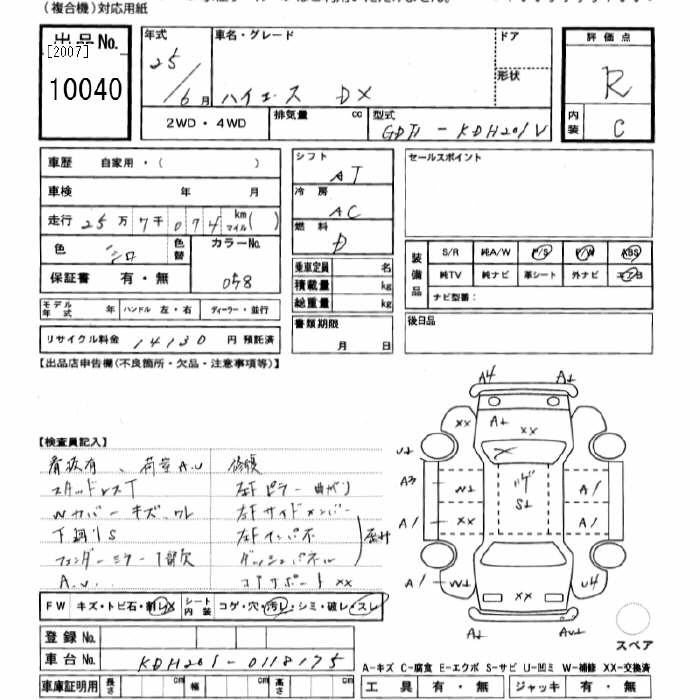 (複合機)対応用紙
出品No.
[2007]
10040
年式
25/6月
車名・グレード
ハイエース DX
ドア
形状
評価点
R
内装
C
2WD・4WD
排気量 cc
型式
KDH201V
車歴 自家用・( )
車検 年 月
走行 25万7千074 km マイル( )
色
シロ
色替
カラーNo.
058
保証書 有・無
シフト
AT
冷房
AC
燃料
D
乗車定員 名
積載量 kg
総重量 kg
書類期限
月 日
セールスポイント
装備品
S/R 純A/W P/S P/W ABS
純TV 純ナビ 革シート 外ナビ エアB
ナビ型番:
後日品
モデル年式 年 ハンドル 左・右 ディーラー・並行
リサイクル料金 14130 円 預託済
【出品店申告欄(不良箇所・欠品・注意事項等)】
【検査員記入】
看板有、荷室A.U 修復
スタッドレスT 左Fピラー曲がり
Wカバーキズ、ワレ 左Fサイドメンバー
下廻りS 左Fインパネ
フェンダーミラー下部欠 ダッシュパネル
A.U. コアサポートXX
A4
A1
XX
A1
XX
U1
A3
W1
S1
A1
A1
XX
A1
A1
W1
U4
XX
A1
スペア
FW キズ・トビ石・刺レX シート内装 コゲ・穴・汚レ・シミ・破レ・スレ
登録No.
車台No. KDH201-0118175
車庫証明用 長さ cm 幅 cm 高さ cm
A-キズ C-腐食 E-エクボ S-サビ U-凹ミ W-補修 XX-交換済
工具 有・無 ジャッキ 有・無